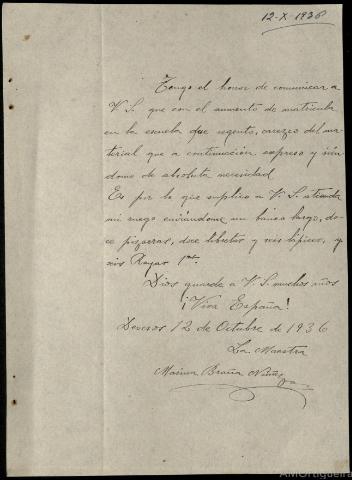 12-X-1936
Tengo el honor de comunicar a
V. S. que con el aumento de matrícula
en la escuela que regento, carezco del ma-
terial que a continuación expreso y sién-
dome de absoluta necesidad
Es por lo que suplico a V. S. atienda
mi ruego enviándome un banco largo, do-
ce pizarras, doce libretas y seis lápices, y
seis Rayas 1as.
Dios guarde a V. S. muchos años
¡Viva España!
Devesos 12 de Octubre de 1936
La Maestra
Marina Braña Núñez
AMOrtigueira